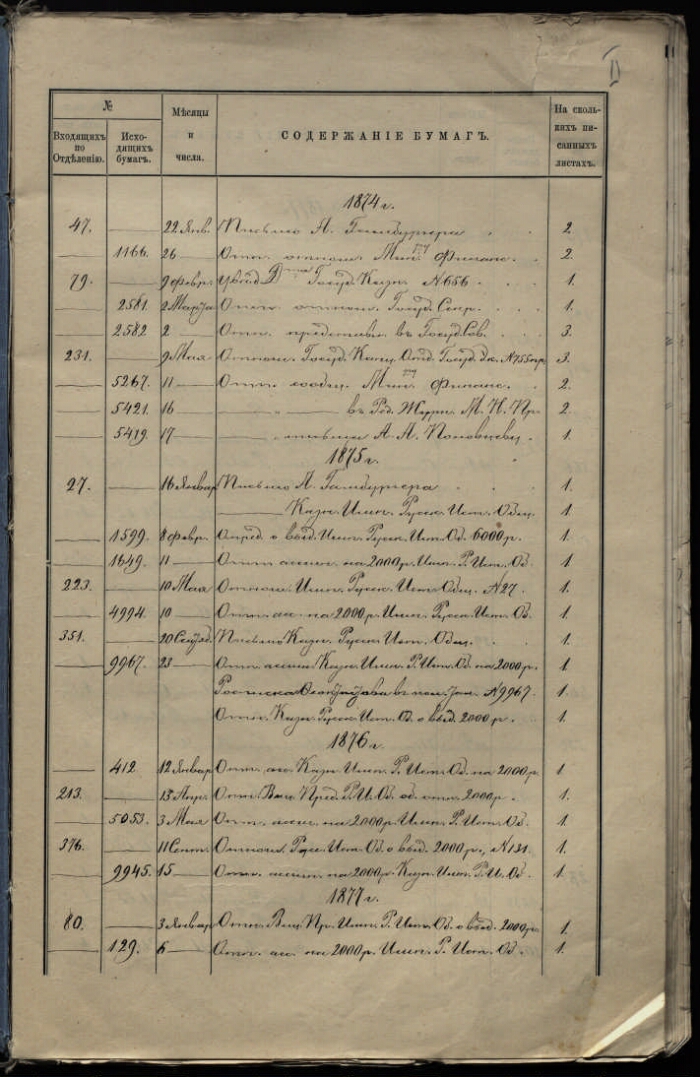 II
№
Входящихъ по Отдѣленію.
Исходящихъ бумагъ.
Мѣсяцы и числа.
СОДЕРЖАНІЕ БУМАГЪ.
На сколькихъ писанныхъ листахъ.
1874 г.
47. 22 Янв. Письмо А. Гамбургера 2.
1166. 26 Отп. отнош. Мин. Финанс. 2.
79. 9 февр. Увѣд. Госуд. Казн. N 656 1.
2581. 2 Марта Отп. отнош. Госуд. Секр. 1.
2582 2 Отп. представл. въ Госуд. Сов. 3.
231. 9 Мая Отнош. Госуд. Канц. Отд. Госуд. Эк. 3.
5267. 11 Отп. сообщ. Мин. Финанс. 2.
5421. 16 въ Ред. Журн. М. Н. Пр. 2
5419. 17 письма А. А. Половцеву. 1.
1875 г.
27. 16 Январ. Письмо А. Гамбургера 1.
Казн. Имп. Русск. Ист. Общ. 1.
1599. 8 февр. Опред. о выд. Имп. Русск. Ист. Об. 6000 р. 1.
1649. 11 Отп. ассигн. на 2000 р. Имп. Р. Ист. Об. 1.
223. 10 Мая Отнош. Имп. Русск. Ист. Общ. N 27. 1.
4994. 10 Отп. ас. на 2000 р. Имп. Русск. Ист. Об. 1.
351. 20 Письмо Казн. Русск. Ист. Общ. 1.
9967. 23 Отп. ассигн. Казн. Имп. Р. Ист. Об. на 2000 р. 1.
Росписка въ N 9967. 1.
Отп. Казн. Русск. Ист. Об. о выд. 2000 р. 1.
1876 г.
412 12 Январ. Отп. ас. Казн. Имп. Р. Ист. Об. на 2000 р. 1.
213. 13 Апр. Отн. Пред. Р. И. Об. 2000 р. 1.
5053. 3 Мая Отп. ассиг. на 2000 р. Имп. Р. Ист. Об. 1.
376. 11 Сент. Отнош. Русс. Ист. Об. о выд. 2000 р., N 131. 1.
9945. 15 Отп. ассигн. на 2000 р. Казн. Имп. Р. И. Об. 1.
1877 г.
80. 3 Январ. Отн. Пр. Имп. Р. Ист. Об. о выд. 2000 р. 1.
129. 6 Отп. ас. на 2000 р. Имп. Р. Ист. Об. 1.